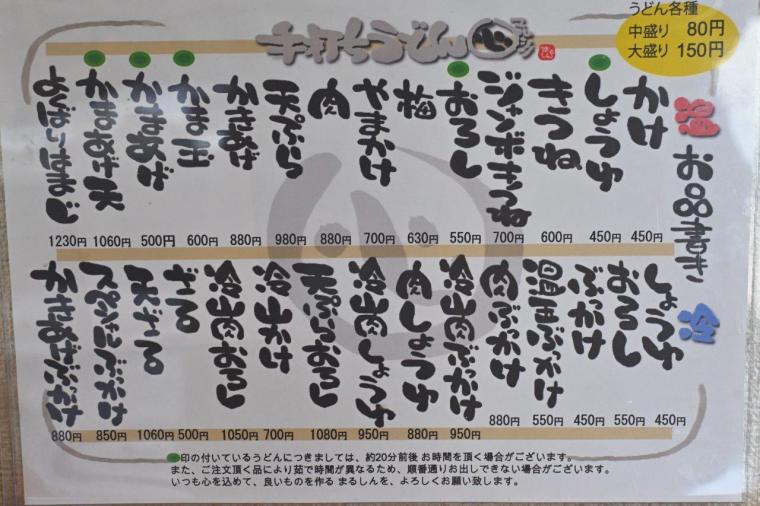 うどん各種
中盛り 80円
大盛り 150円
手打ちうどん
お品書き
温
かけ 450円
しょうゆ 450円
きつね 600円
ジャンボきつね 700円
おろし 550円
梅 630円
やまかけ 700円
肉 880円
天ぷら 980円
かきあげ 880円
かま玉 600円
かまあげ 500円
かまあげ天 1060円
よくばりはまじ 1230円
冷
しょうゆ 450円
おろし 550円
ぶっかけ 450円
温玉ぶっかけ 550円
肉ぶっかけ 880円
冷肉ぶっかけ 950円
肉しょうゆ 880円
冷肉しょうゆ 950円
天ぷらおろし 1080円
冷山かけ 700円
冷肉おろし 1050円
ざる 500円
天ざる 1060円
スペシャルぶっかけ 850円
かきあげぶっかけ 880円
印の付いているうどんにつきましては、約20分前後 お時間を頂く場合がございます。
また、ご注文頂く品により茹で時間が異なるため、順番通りお出しできない場合がございます。
いつも心を込めて、良いものを作る まるしんを、よろしくお願い致します。